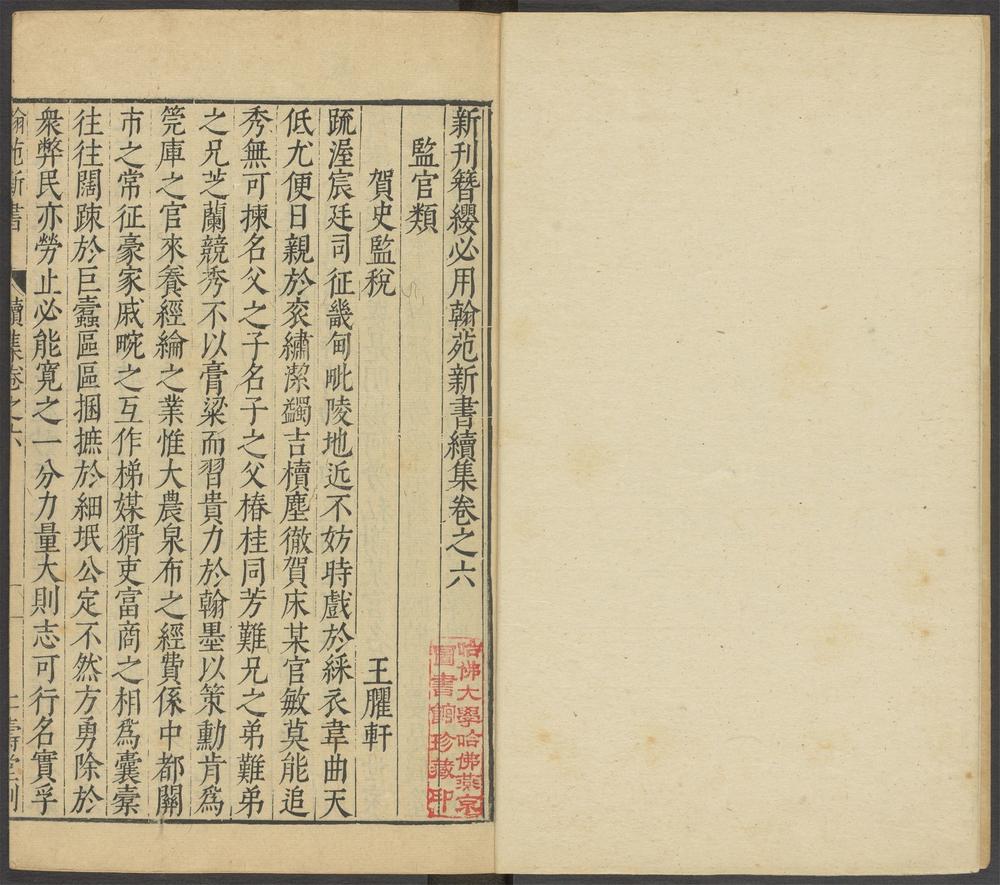 新刊簪纓必用翰苑新書續集卷之六
監官類
賀史監稅　王臞軒
疏渥宸廷司征畿甸毗陵地近不妨時戲於綵衣韋曲天
低尤便日親於衮繡潔蠲吉櫝塵徹賀床某官敏莫能追
秀無可揀名父之子名子之父椿桂同芳難兄之弟難弟
之兄芝蘭競秀不以膏粱而習貴力於翰墨以策勳肯爲
筦庫之官來養經綸之業惟大農泉布之經費係中都關
市之常征豪家戚畹之互作梯媒猾吏富商之相爲囊橐
往往闊踈於巨蠹區區捆摭於細氓公定不然方勇除於
衆弊民亦勞止必能寛之一分力量大則志可行名實孚
翰苑新書　續集卷之六
哈佛大學哈佛燕京圖書館珍藏印